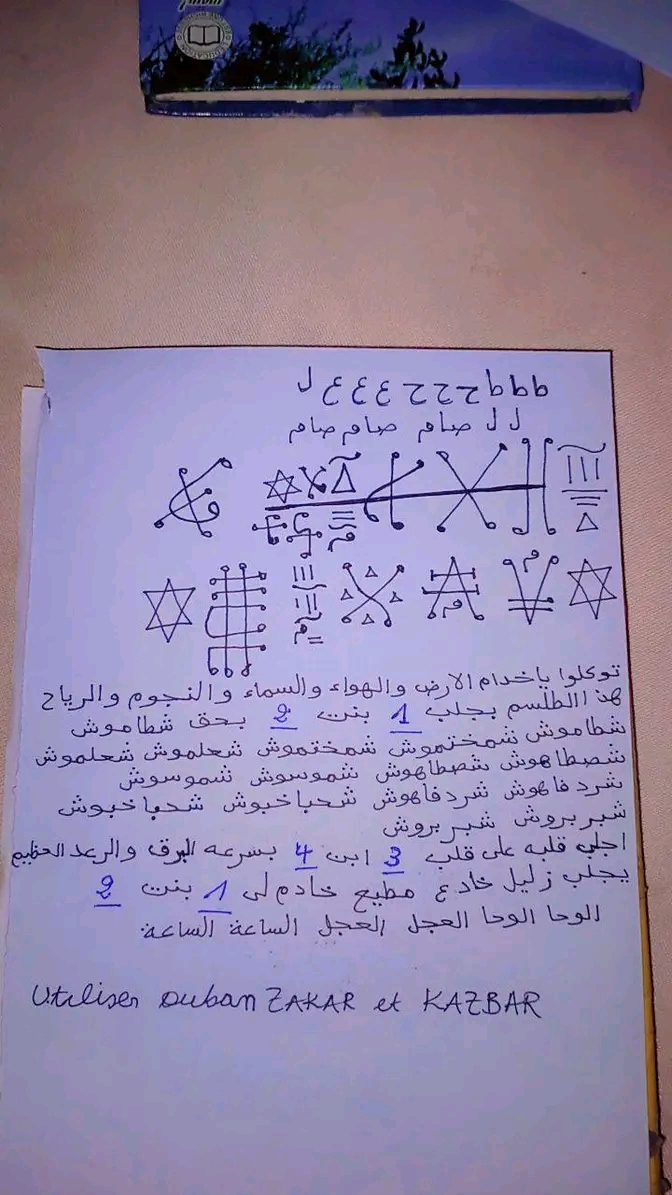 EDUCATION
ط ط ط ح ح ح ع ع ع ل
ل ل صام صام صام
توكلوا ياخدام الارض والهواء والسماء والنجوم والرياح
هذا الطلسم بجلب 1 بنت 2 بحق شطاموش
شطاموش شمختموش شمختموش شعلموش شعلموش
شصطاهوش شصطاهوش شموسوش شموسوش
شردفاهوش شردفاهوش شحباخبوش شحباخبوش
شبربروش شبربروش
اجلب قلبه على قلب 3 ابن 4 بسرعه البرق والرعد العظيم
يجلب زليل خادع مطيع خادم لى 1 بنت 2
الوحا الوحا العجل العجل الساعة الساعة
Utiliser ouban ZAKAR et KAZBAR